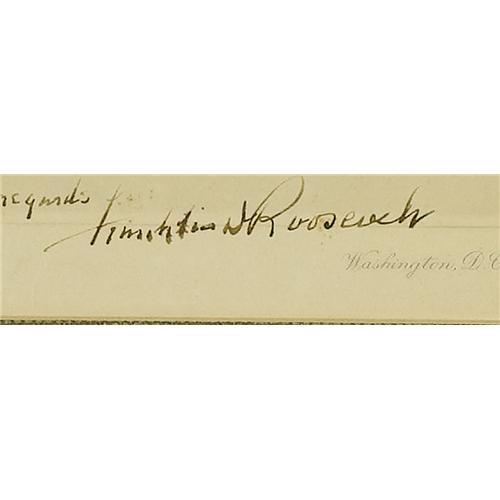 regards
Franklin D Roosevelt
Washington, D.C